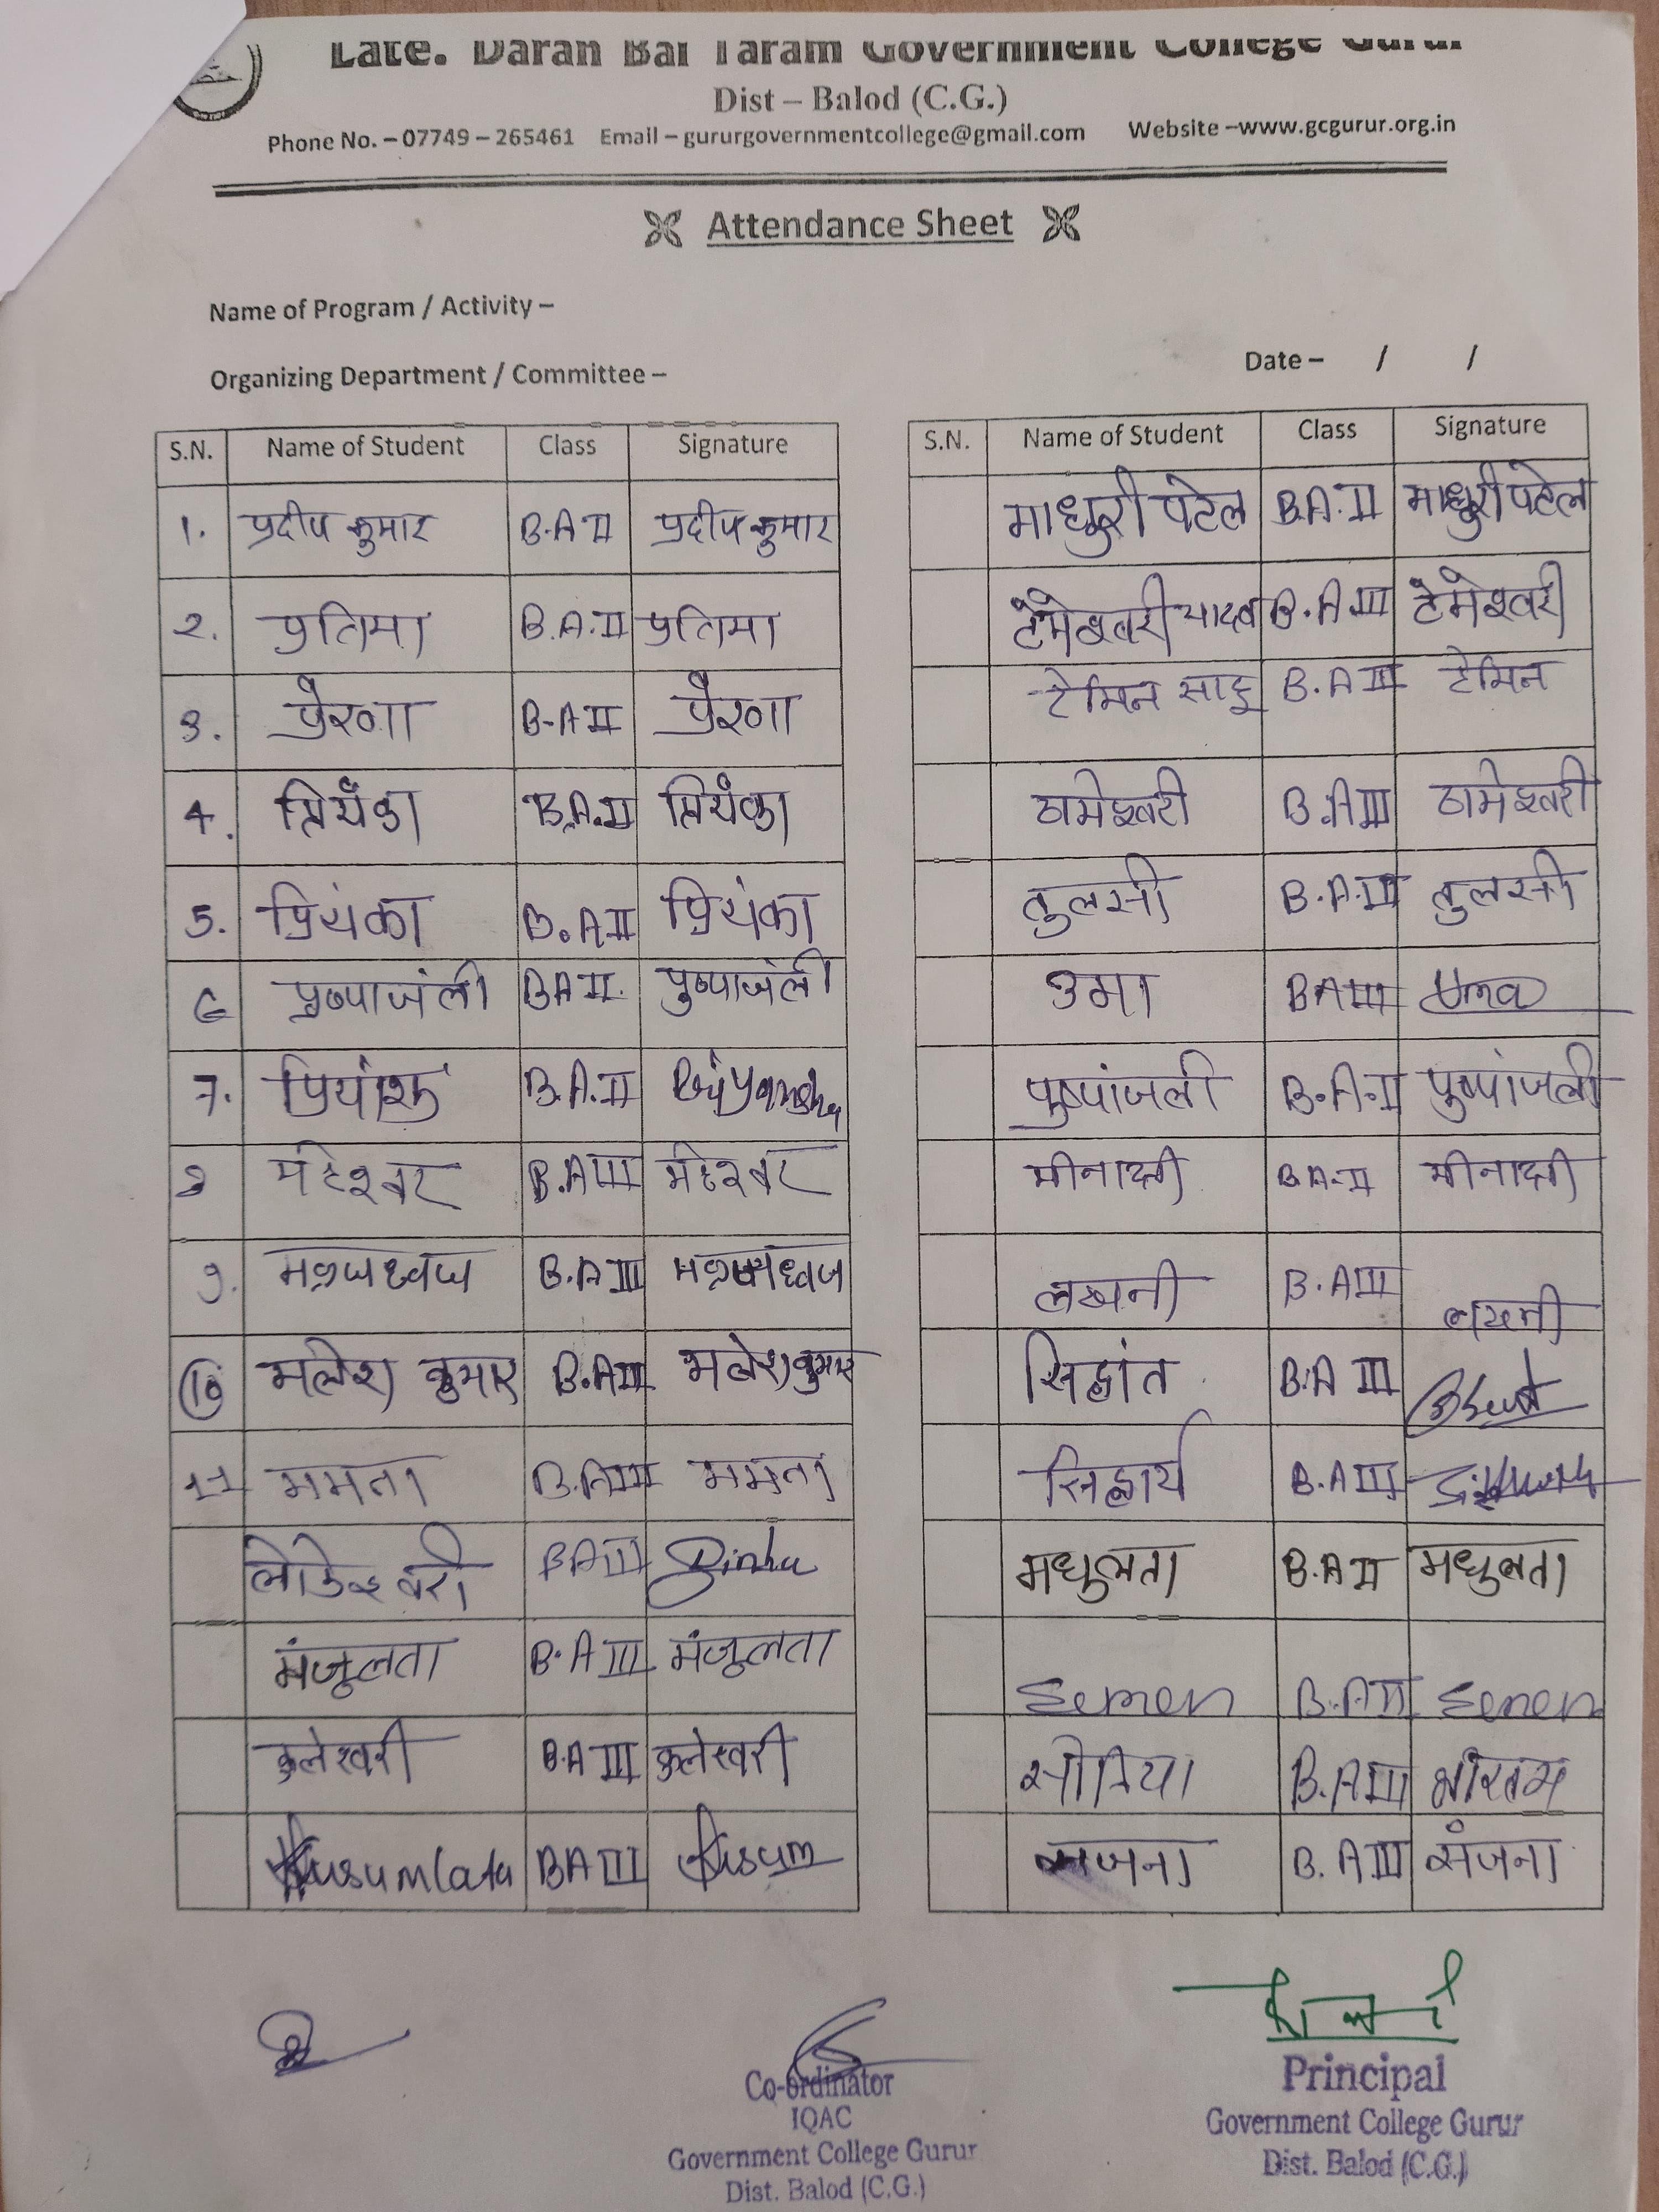 Late. Daran Bai Taram Government College Gurur
Dist – Balod (C.G.)
Phone No. – 07749 – 265461 Email – gururgovernmentcollege@gmail.com Website –www.gcgurur.org.in
Attendance Sheet
Name of Program / Activity –
Date – / /
Organizing Department / Committee –
S.N. Name of Student Class Signature
1. प्रदीप कुमार B.A II प्रदीप कुमार
2. प्रतिमा B.A.II प्रतिमा
3. प्रेरणा B-A II प्रेरणा
4. प्रियंका B.A.II प्रियंका
5. प्रियंका B.A II प्रियंका
6 पुष्पाजंली BA II. पुष्पाजंली
7. प्रियांशु B.A.II Priyanshu
8 B.A III
9. B.A III
10 मलेश कुमार B.A III मलेश कुमार
11 ममता B.A III ममता
लोकेश्वरी BA III
मंजूलता B.A III मंजूलता
कुलेश्वरी B.A III कुलेश्वरी
Kusumlata BA III Kusum
S.N. Name of Student Class Signature
माधुरी पटेल B.A.II माधुरी पटेल
टेमेश्वरी यादव B.A.III टेमेश्वरी
टेमिन साहू B.A III टेमिन
ठामेश्वरी B.A III ठामेश्वरी
तुलसी B.A.III तुलसी
उमा BA III Uma
पुष्पांजली B.A.II पुष्पांजली
मीनाक्षी B.A-II मीनाक्षी
लखनी B.A III लखनी
सिद्धांत B.A III
सिद्धार्थ B.A III
मधुलता B.A II मधुलता
B.A III
B.A III
संजना B.A III संजना
Co-ordinator
IQAC
Government College Gurur
Dist. Balod (C.G.)
Principal
Government College Gurur
Dist. Balod (C.G.)